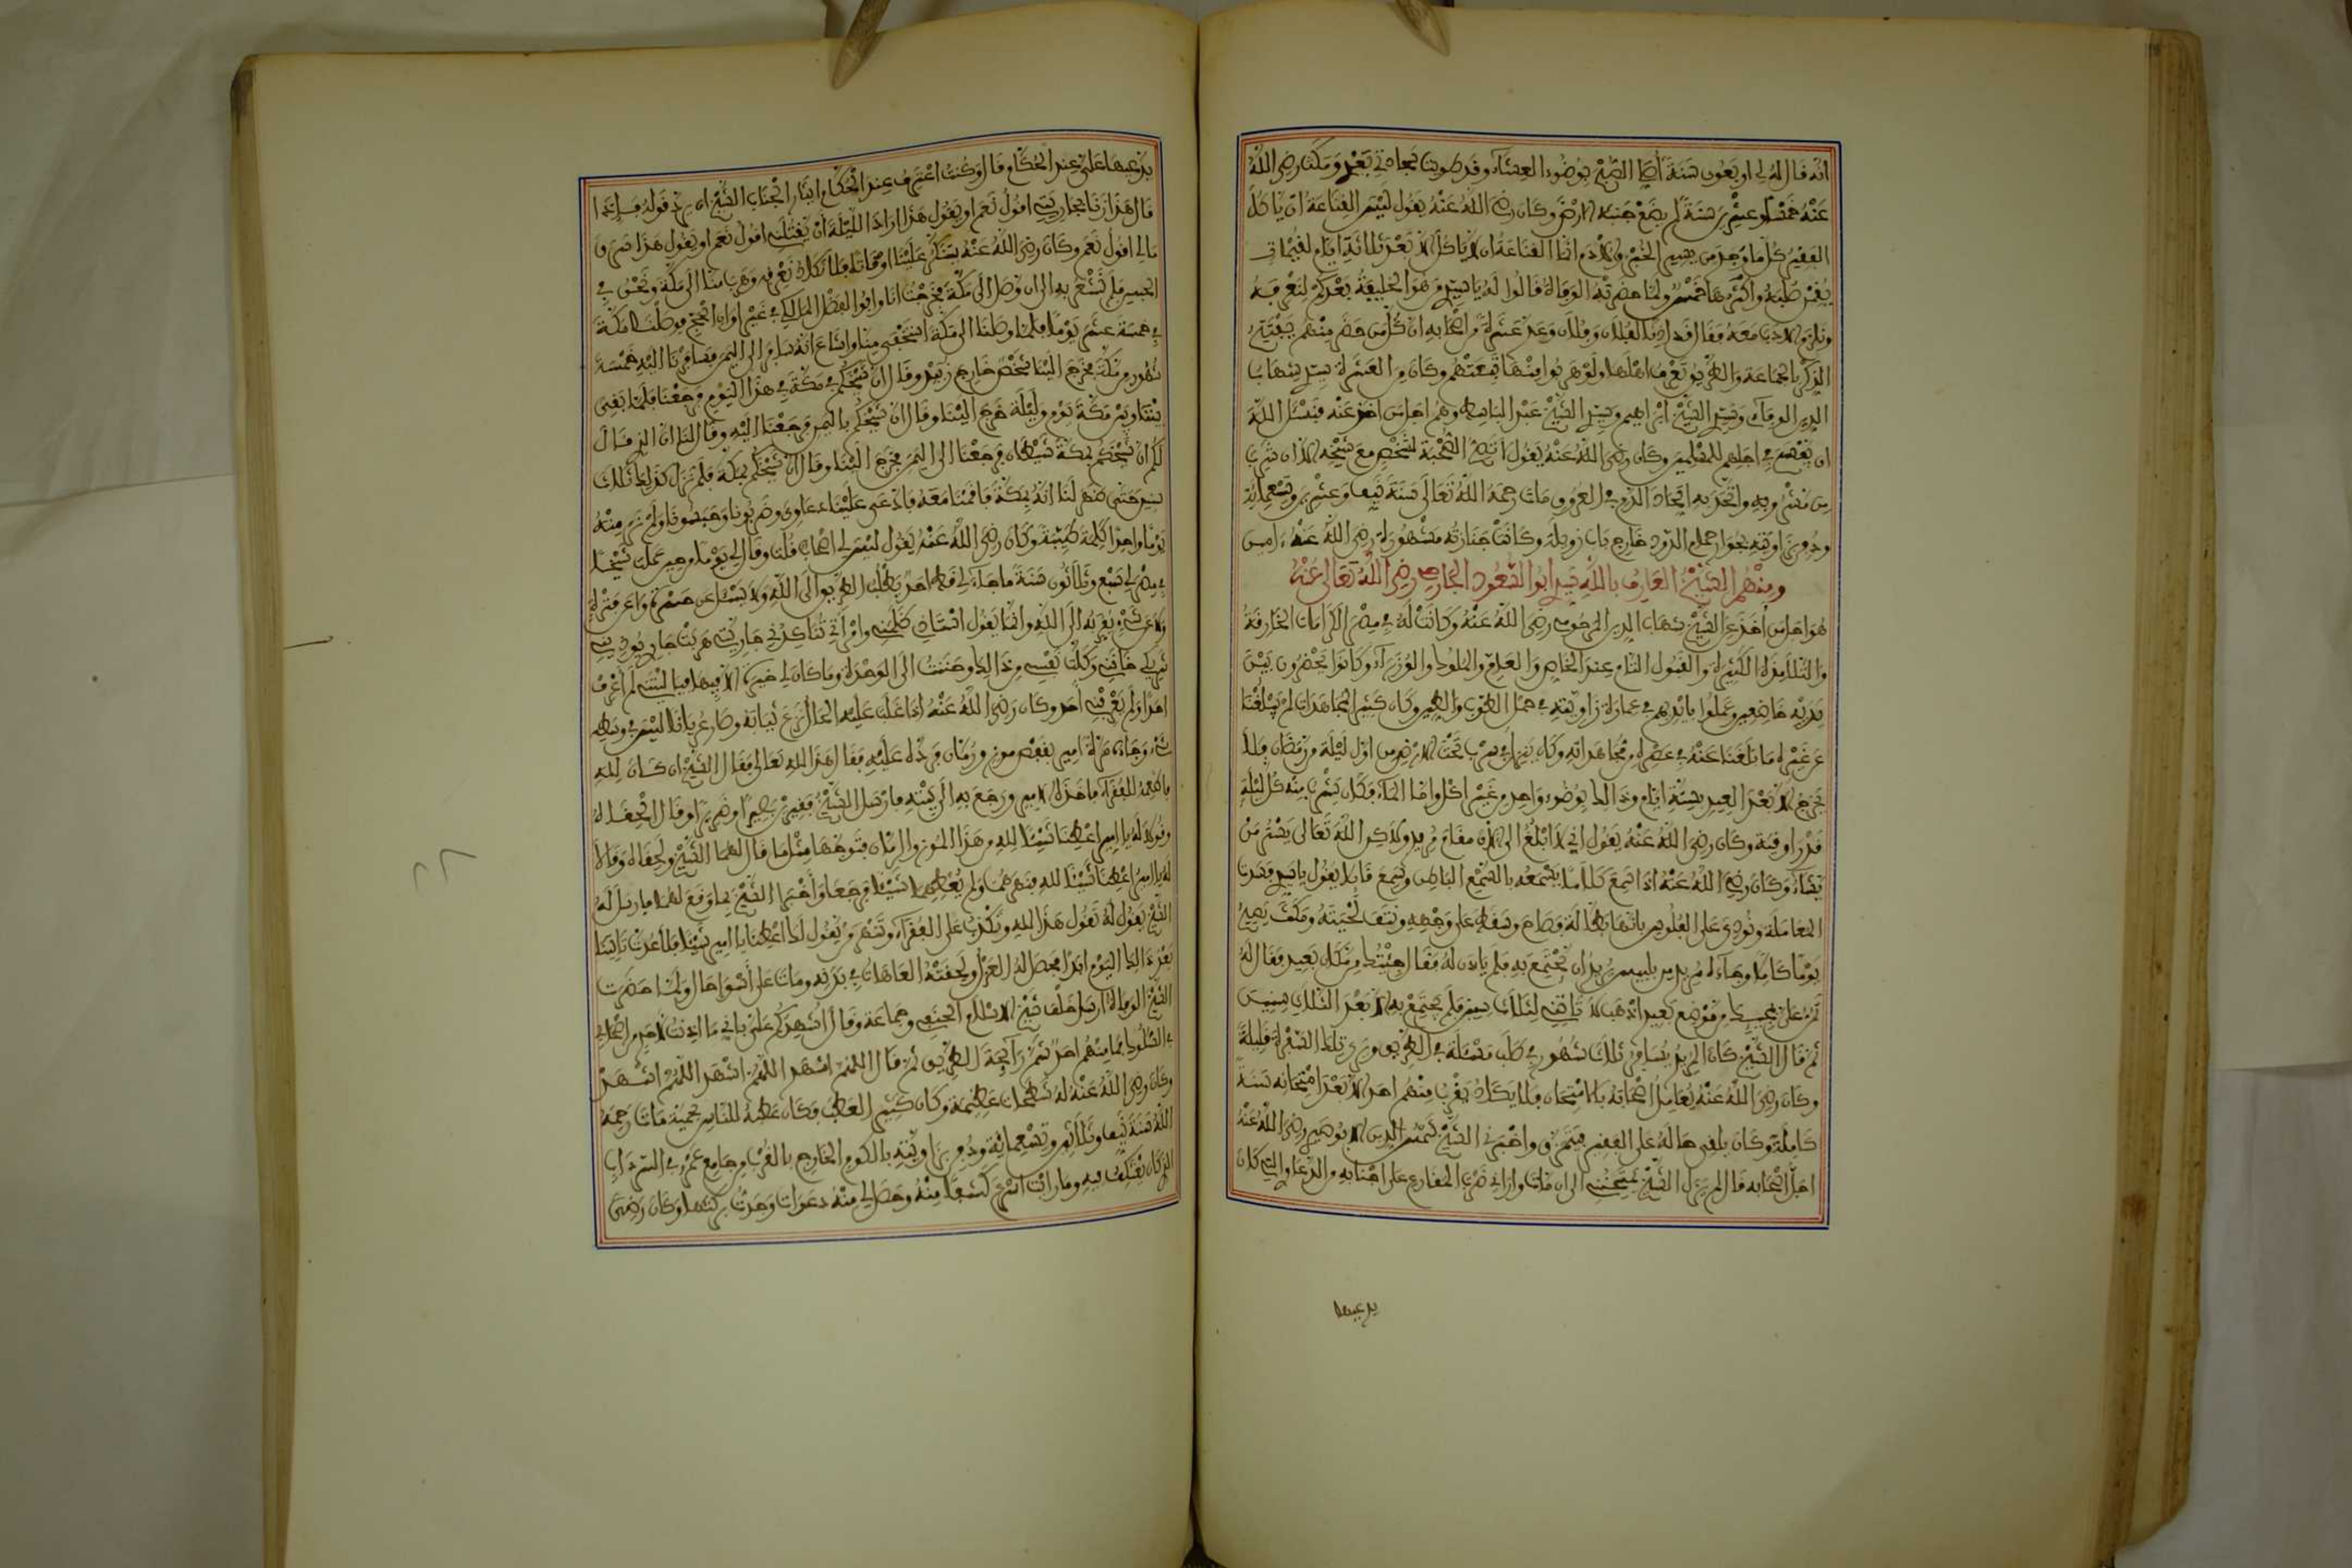 انه قال له لي اربعون سنة أصلي الصبح بوضوء العشاء وقد طويت سجادتي بعدي ومكث رضي الله
عنه خمسا وعشرين سنة لم يضع جنبه الارض وكان رضي الله عنه يقول ليس القناعة ان ياكل
الفقير كل ما وجد من يسير الخبز والادم انما القناعة ان لا ياكل الا بعد ثلاثة ايام لقيمات
يقمن صلبه واكثرها خمس ولما حضرته الوفاة قالوا له يا سيدي من هو الخليفة بعدكم لنعرفه
ونلزم الادب معه فقال قد اذنا لفلان وفلان وعد عشرة من اصحابه ان كل من حضر منهم يفتتح
الذكر بالجماعة والطريق تعرف اهلها ولو هربوا منها تبعتهم وكان من العشرة سيدي شهاب
الدين الوفاءي وسيدي الشيخ ابراهيم وسيدي الشيخ عبد الباسط وهم اجل من اخذ عنه فنسئل الله
ان يفسح في اجلهم للمسلمين وكان رضي الله عنه يقول لا تصح الصحبة لشخص مع شيخه الا ان شرب
من مشروبه واتحد به اتحاد الدم في العروق مات رحمه الله تعالى سنة نيف وعشرين وتسعماية
ودفن بزاويته بجوار حمام الدود خارج باب زويلة وكانت جنازته مشهورة رضي الله عنه امين
ومنهم الشيخ العارف بالله سيدي ابوا السعود الجارحي رضي الله تعالى عنه
هو اجل من اخذ عن الشيخ شهاب الدين المرحومي رضي الله عنه وكانت له في مصر الكرامات الخارقة
والتلامذة الكثيرة والقبول التام عند الخاص والعام والملوك والوزراء وكانوا يحضرون بين
يديه خاضعين وعملوا بايديهم في عمارة زاويته في حمل الطوب والطين وكان كثير المجاهدات لم يبلغنا
عن غيره ما بلغنا عنه في عصره من مجاهداته وكان ينزل في سرب تحت الارض من اول ليلة من رمضان فلا
يخرج الا بعد العيد بستة ايام وذالك بوضوء واحد من غير اكل واما الماء فكان يشرب منه كل ليلة
قدر اوقية وكان رضي الله عنه يقول اني لا ابلغ الى الان مقام مريد ولاكن الله تعالى يستر من
يشاء وكان رضي الله عنه اذا سمع كلاما يسمعه بالسمع الباطن وسمع قايلا يقول يا سيدي فسدت
المعاملة ونودي على الفلوس بانها بطالة فصاح وسقط على وجهه ونتف لحيته ومكث يصيح
يوما كاملا وجاءه مريد من بلبيس يريد ان يجتمع به فلم ياذن له فقال جئتك من مكان بعيد فقال له
تمن علي بمجيئك من موضع بعيد اذهب لا تاتني لثلاث سنين فلم يجتمع به الا بعد الثلاث سنين
ثم قال الشيخ كان المريد يسافر ثلاث شهور في طلب مسئلة في الطريق ويرى تلك السفرة قليلة
وكان رضي الله عنه يعامل اصحابه بالامتحان فلا يكاد يقرب منهم احد الا بعد امتحانه سنة
كاملة وكان يلقي حاله على الفقير فيتمزق واخبرني الشيخ شمس الدين الابوصيري رضي الله عنه
اجل اصحابه قال لم يزل الشيخ يمتحنني الى ان مات واراني ضرب المقارع على اجنابه والدعاوي التي كان
يدعيها
يدعيها علي عند الحكام قال وكنت اعترف عند الحكام ايثارا لجناب الشيخ ان يرد قوله فاذا
قال هذا زنا بجاريتي اقول نعم او يقول هذا اراد الليلة ان يقتلني اقول نعم او يقول هذا سرق
مالي اقول نعم وكان رضي الله عنه يتنكر علينا اوقاتا فلا نكاد نعرفه وهرب منا الى مكة ونحن في
الحبس فلم نشعر به الى ان وصل الى مكة فخرجت انا وابوا الفضل المالكي في غير اوان الحج فوصلنا مكة
في خمسة عشر يوما فلما وصلنا الى مكة اختفى منا واشاع انه سافر الى اليمن فسافرنا اليه خمسة
شهور من مكة فخرج الينا شخص خارج زبيد وقال ان شيخكم في مكة في هذا اليوم فرجعنا فلما بقي
بيننا وبين مكة يوم وليلة خرج الينا وقال ان شيخكم باليمن فرجعنا اليه وقال لنا ان الذي قال
لكم ان شيخكم بمكة شيطان فرجعنا الى اليمن فخرج الينا وقال ان شيخكم بمكة فلم نزل كذلك ثلاث
سنين حتى ظهر لنا انه بمكة فاقمنا معه فادعى علينا دعاوي وضربونا وحبسونا ولم نر منه
يوما واحدا كلمة طيبة وكان رضي الله عنه يقول ليس لي اصحاب قلت وقال لي يوما من حين عملت شيخا
في مصر لي سبع وثلاثون سنة ما جاءني قط احد يطلب الطريق الى الله ولا يسئل عن حسرة ولا عن فترة
ولا عن شيء يقربه الى الله وانما يقول استاذي ظلمني وامراتي تناكدني جاريتي هربت جاري يوذيني
شريكي خانني وكلت نفسي من ذالك وحننت الى الوحدة وما كان لي خير الا فيها فيا ليتني لم اعرف
احدا ولم يعرفني احد وكان رضي الله عنه اذا غلب عليه الحال نزع ثيابه وصار عريانا ليس في وسطه
شيء وجاءه مرة امير بقفص موز ورمان فرده عليه فقال هذا لله تعالى فقال الشيخ ان كان لله
فاطعمه للفقراء فاخذه الامير ورجع به الى بيته فارسل الشيخ فقيرين بصيرا وضريرا وقال الحقاه
وقولا له يا امير اعطنا شيئا لله من هذا الموز والرمان فتوجها مثل ما قال لهما الشيخ ولحقاه وقالا
له يا امير اعطنا شيئا لله فنهرهما ولم يعطهما شيئا فرجعا واخبرا الشيخ بما وقع لهما فارسل له
الشيخ يقول له تقول هذا لله وتكذب على الفقراء وتنهر من يقول لك اعطنا يا امير شيئا فلا عدت تاتنا
بعد ذالك اليوم ابدا فحصل له العزل ولحقته العاهات في بدنه ومات على اسوا حال ولما حضرت
الشيخ الوفاة ارسل خلف شيخ الاسلام الحنفي وجماعة وقال اشهدكم علي باني ما اذنت لاحد من اصحابي
في السلوك فما منهم احد شم رايحة الطريق ثم قال اللهم اشهد اللهم اشهد اللهم اشهد
وكان رضي الله عنه له شطحات عظيمة وكان كثير العطب وكان عطبه للناس بحمية مات رحمه
الله سنة نيف وثلاثين وتسعماية ودفن بزاويته بالكوم الخارج بالقرب من جامع عمرو في السرداب
الذي كان يعتكف فيه وما رايت اسرع كشفا منه وحصل لي منه دعوات وجدت بركتها وكان رضي